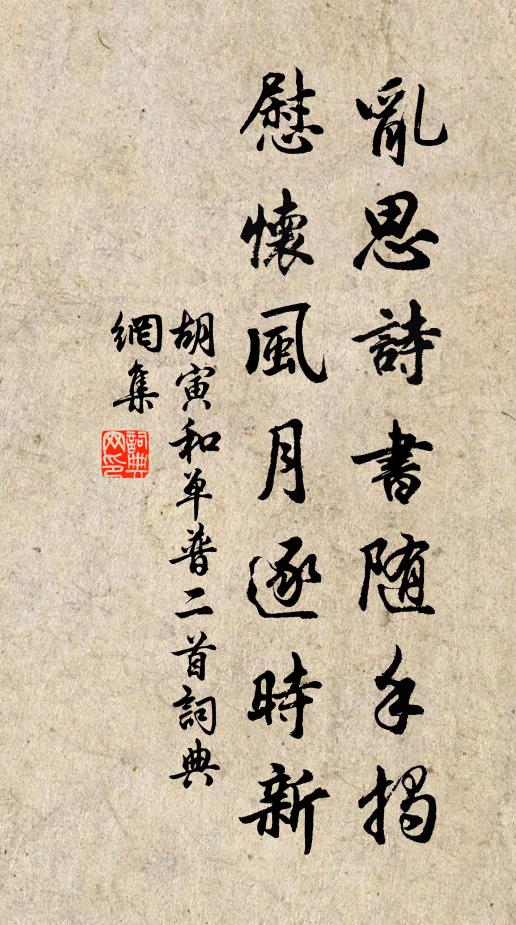 亂思詩書随手揭
慰懷風月逐時新
胡寅和单普二首詞典
網集
詞典
网印